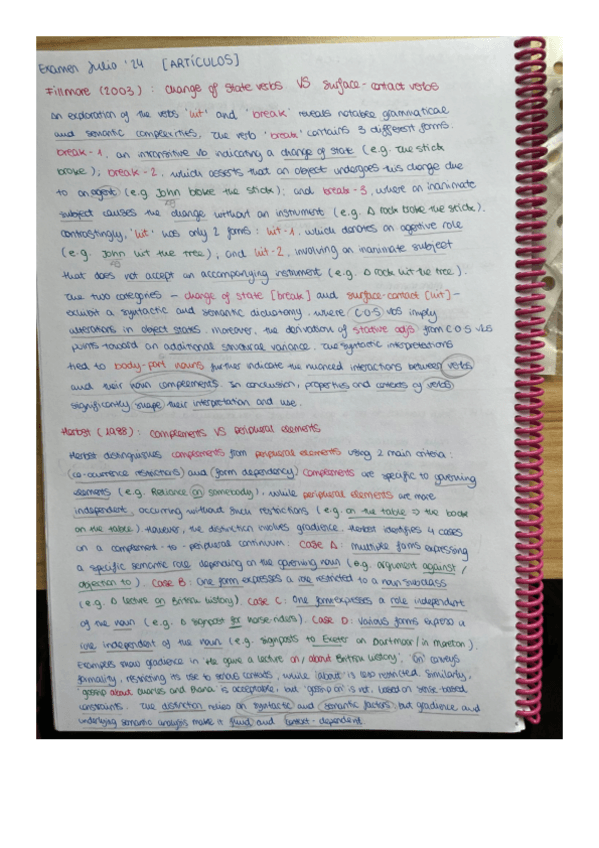 Examen Julio '24 [ARTÍCULOS]
Fillmore (2003): change of state verbs VS surface-contact verbs
An exploration of the verbs 'hit' and 'break' reveals notable grammatical
and semantic complexities. The verb 'break' contains 3 different forms.
break-1, an intransitive vb indicating a change of state (e.g. The stick
broke), break-2, which asserts that an object undergoes this change due
to an agent (e.g. John broke the stick); and break-3, where an inanimate
subject causes the change without an instrument (e.g. A rock broke the stick).
Contrastingly, 'hit' has only 2 forms: hit-1, which denotes an agentive role
(e.g. John hit the tree), and hit-2, involving an inanimate subject
that does not accept an accompanying instrument (e.g. A rock hit the tree).
The two categories – change of state [break] and surface-contact [hit] –
exhibit a syntactic and semantic dichotomy, where C.O.S vbs imply
alterations in object states. Moreover, the derivation of stative adjs from C.O.S vbs
points toward an additional structural variance. The syntactic interpretations
tied to body-part nouns further indicate the nuanced interactions between verbs
and their noun complements. In conclusion, properties and contexts of verbs
significantly shape their interpretation and use.
Herbst (1988): complements VS peripheral elements
Herbst distinguishes complements from peripheral elements using 2 main criteria:
(co-ocurrence restrictions) and (form dependency) Complements are specific to governing
elements (e.g. Reliance on somebody), while peripheral elements are more
independent, occurring without such restrictions (e.g. on the table → the book
on the table) However, the distinction involves gradience. Herbst identifies 4 cases
on a complement-to-peripheral continuum: Case A: Multiple forms expressing
a specific semantic role depending on the governing noun (e.g. argument against /
objection to). Case B: One form expresses a role restricted to a noun subclass
(e.g. A lecture on British history). Case C: One form expresses a role independent
of the noun (e.g. A signpost for horse-riders). Case D: Various forms express a
role independent of the noun (e.g. signposts to Exeter on Dartmoor / in Moreton).
Examples show gradience in 'He gave a lecture on/about British history', 'on' conveys
formality, restricting its use to serious contexts, while 'about' is less restricted. Similarly,
'gossip about Charles and Diana' is acceptable, but 'gossip on' is not, based on sense-based
constraints. The distinction relies on syntactic and semantic factors, but gradience and
underlying semantic analysis make it fluid and context-dependent.